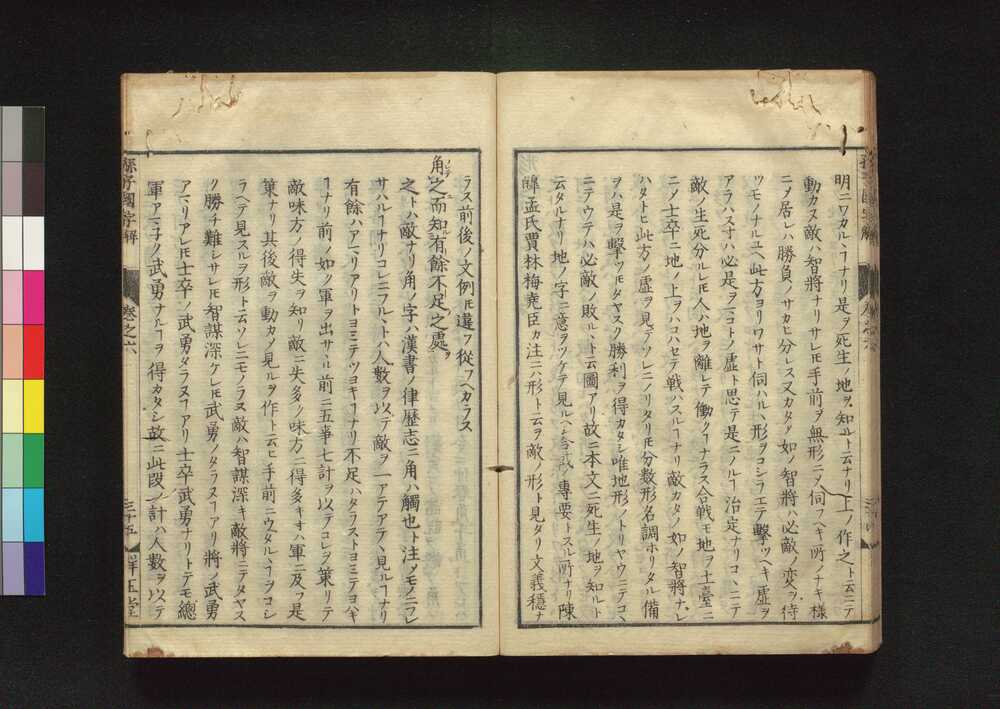 明ニワカルヽヿナリ是ヲ死生ノ地ヲ知ルト云ナリ上ノ作之ト云ニテ
動カヌ敵ハ智將ナリサレ𪜈手前ヲ無形ニヌ伺フヘキ所ノナキ樣
ニヌ居レハ勝負ノサカヒ分レス又カタノ如ノ智將ハ必敵ノ変ヲ待
ツモノナルユヘ此方ヨリワサト伺ハルヘ形ヲコシラエテ擊ツヘキ虛ヲ
アラハス寸ハ必是ヲマコトノ虛ト思テ是ニノルヿ治定ナリコヽニテ
敵ノ生死分ルレ𪜈人ハ地ヲ離レテ働クヿナラス合戰モ地ヲ土臺ニ
ニノ士卒ニ地ノ上ヲハコハセテ戰ハスルヿナリ敵カタノ如ノ智將ナレ
ハタトヒ此方ノ虛ヲ見テソレニノリタリ𪜈分數形名調ホリタル備
ヲハ是ヲ擊ツ𪜈タヤスク勝利ヲ得カタシ唯地形ノトリヤウニテコヽ
ニテウテハ必敵ノ敗ルヽト云圖アリ故ニ本文ニ死生ノ地ヲ知ルト
云タルナリ地ノ字ニ意ヲツケテ見ルヘシ今戰ノ專要トスル所ナリ陳
皥孟氏賈林梅堯臣カ注ニハ形ト云ヲ敵ノ形ト見タリ文義穩ナ
ラス前後ノ文例𪜈違フ從フヘカラス
角之而知有餘不足之處ヲ
之トハ敵ナリ角ノ字ハ漢書ノ律歷志ニ角ハ觸也ト注ノモノニフレ
サハルヿナリコレニフルヽトハ人數ヲ以テ敵ヲ一アテアテヽ見ルヿナリ
有餘ハアマリアリトヨミテツヨキヿナリ不足ハタラストヨミテヨハキ
ヿナリ前ノ如ク軍ヲ出サヽル前ニ五事七計ヲ以テコレヲ策リテ
敵味方ノ得失ヲ知リ敵ニ失多ノ味方ニ得多キ寸ハ軍ニ及フ是
策ナリ其後敵ヲ動カノ見ルヲ作ト云ヒ手前ニウタルヽヿヲコシ
ラヘテ見スルヲ形ト云ソレニモノラヌ敵ハ智謀深キ敵將ニテタヤス
ク勝チ難シサレ𪜈智謀深ケレ𪜈武勇ノタラヌヿアリ將ノ武勇
アマリアレ𪜈士卒ノ武勇タラヌヿアリ士卒武勇ナリトテモ總
軍アマ子ノ武勇ナルヿヲ得カタシ故ニ此段ノ計ハ人數ヲ以テ
孫子國字解
卷之六
三十五
群玉堂